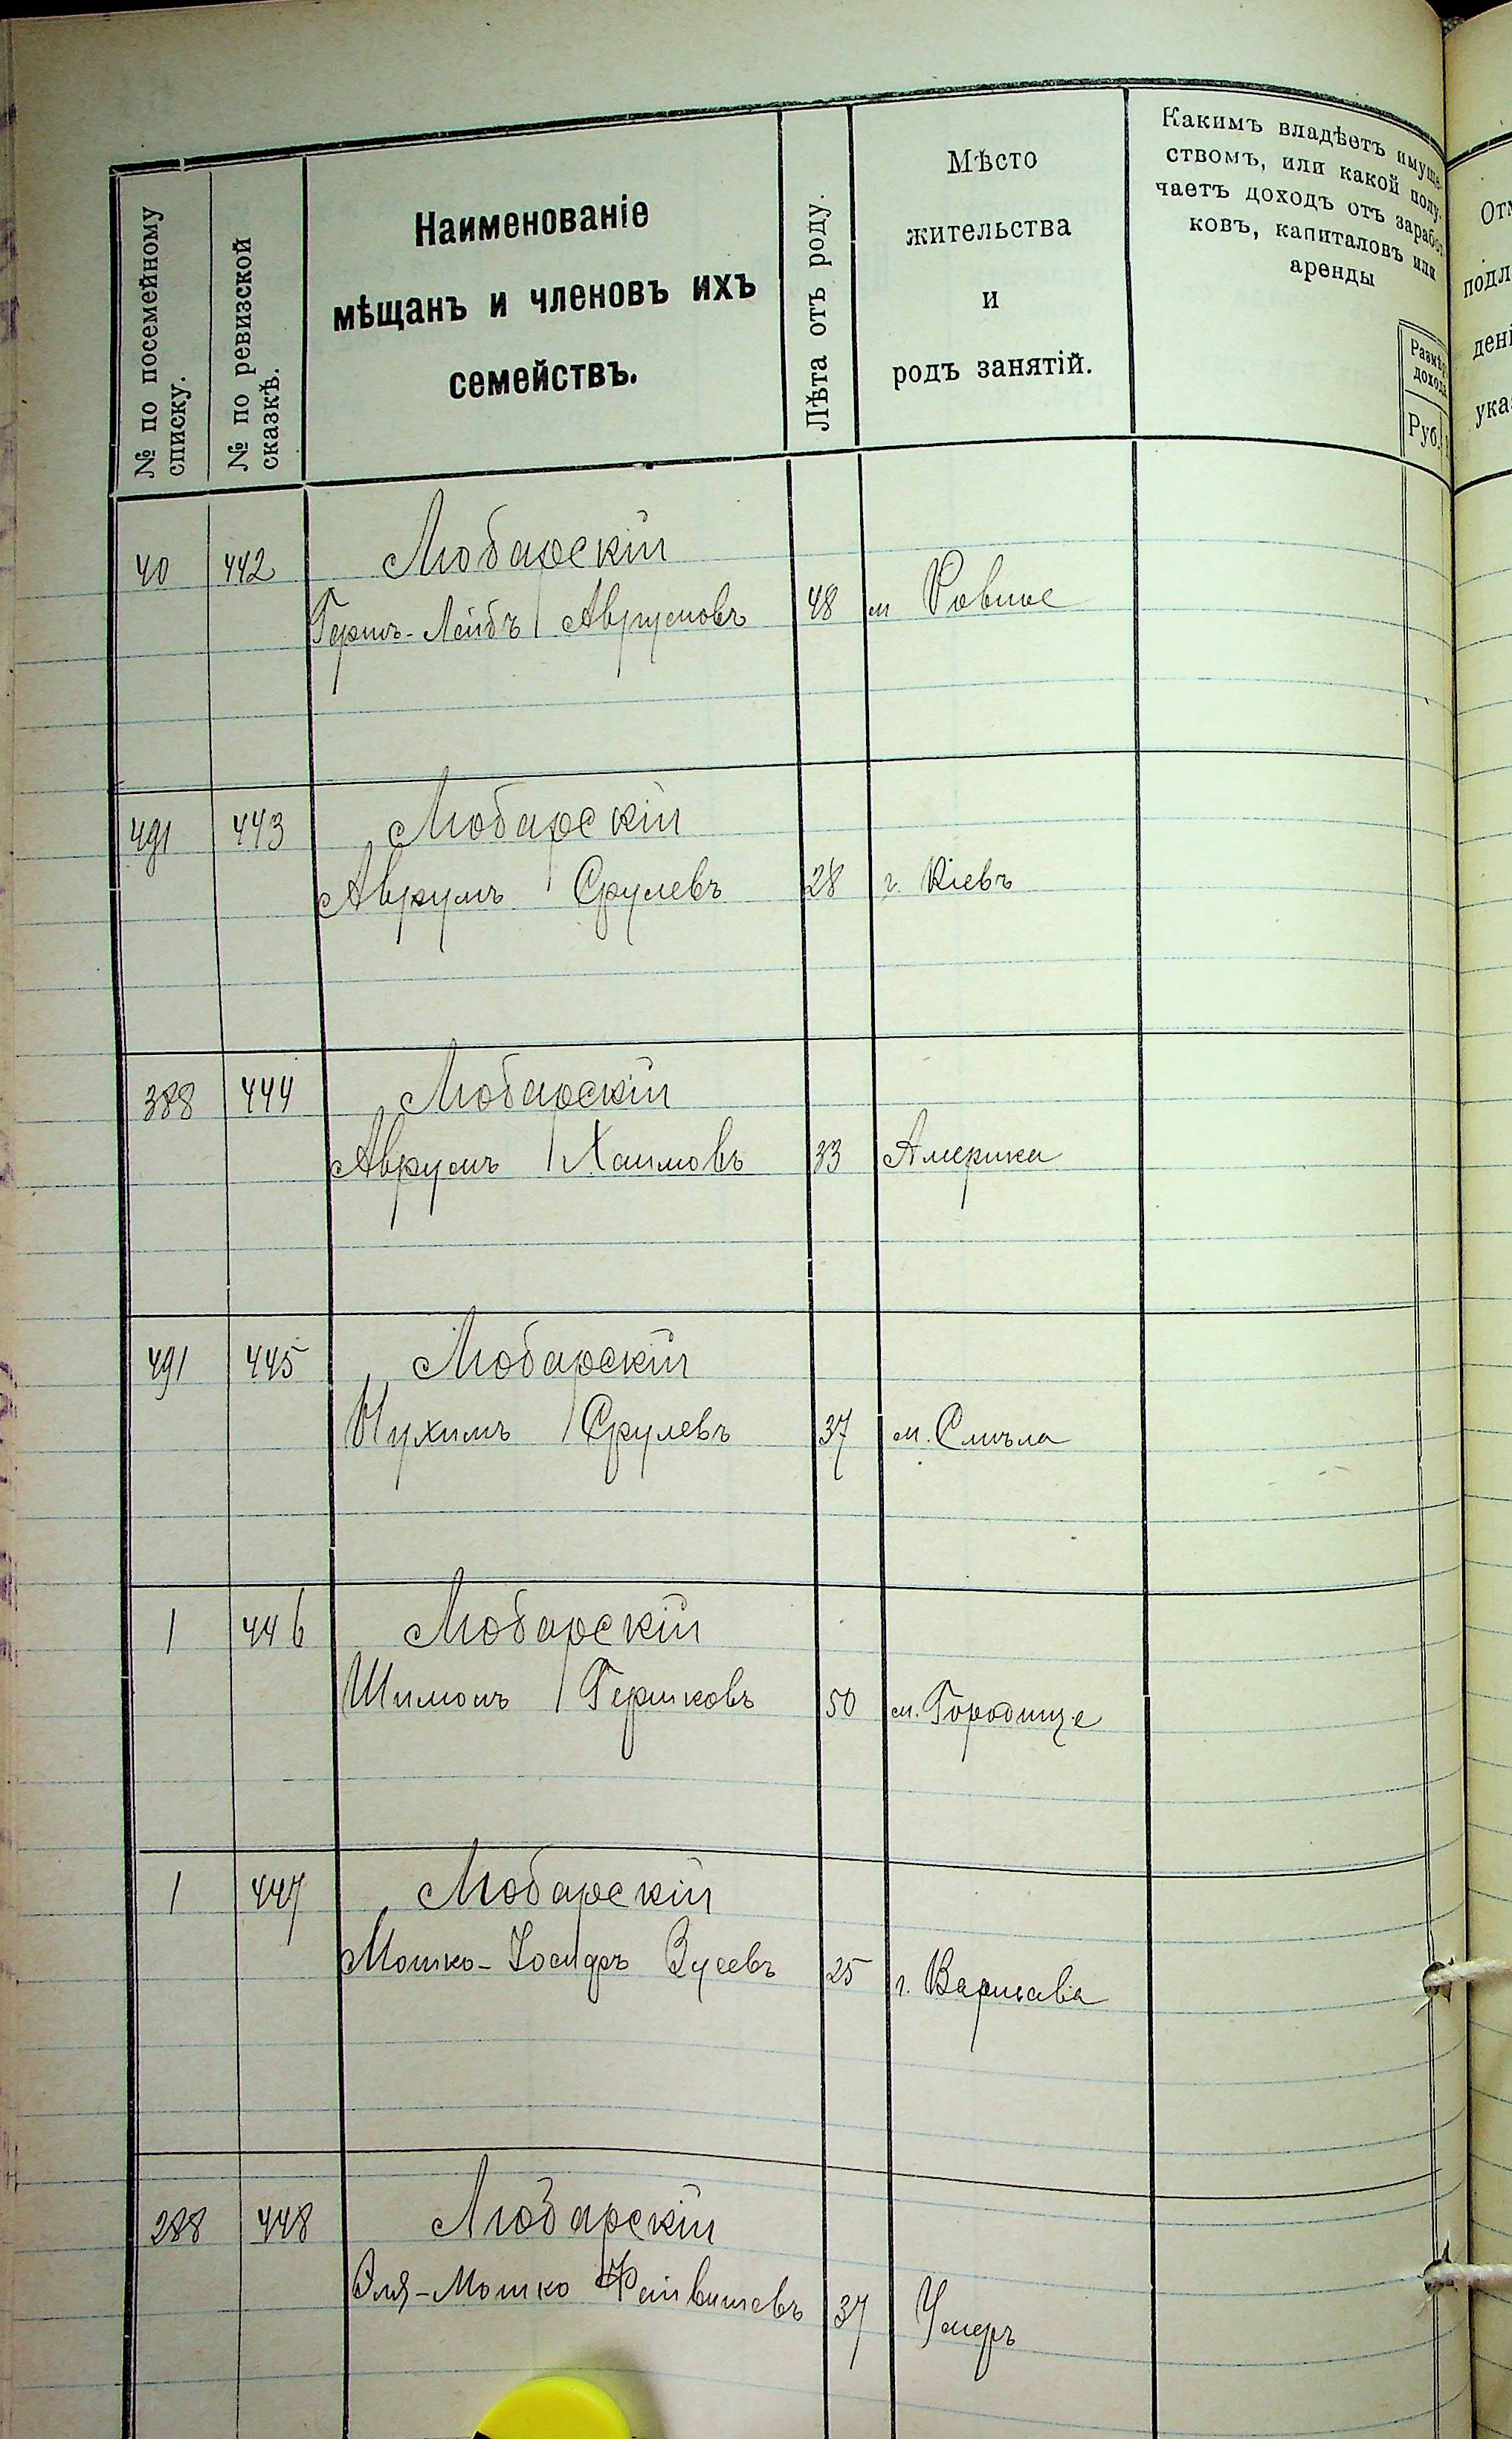 № по посемейному
списку.
№ по ревизской
сказкѣ.
Наименованіе
мѣщанъ и членовъ ихъ
семействъ.
Лѣта отъ роду.
Мѣсто
жительства
и
родъ занятій.
Какимъ владѣетъ имуще-
ствомъ, или какой полу-
чаетъ доходъ отъ заработ
ковъ, капиталовъ или
аренды
Размѣръ
дохода
Руб.
40 442 Любарскій
Гершъ-Лейбъ Аврумовъ 48 м Ровное
491 443 Любарскій
Аврумъ Срулевъ 28 г. Кіевъ
388 444 Любарскій
Аврумъ Хаимовъ 33 Америка
491 445 Любарскій
Нухимъ Срулевъ 37 м. Смѣла
1 446 Любарскій
Шимонъ Гершковъ 50 м. Городище
1 447 Любарскій
Мошко-Іосифъ Зусевъ 25 г. Варшава
288 448 Любарскій
Эля-Мошко Файвишевъ 37 Умеръ